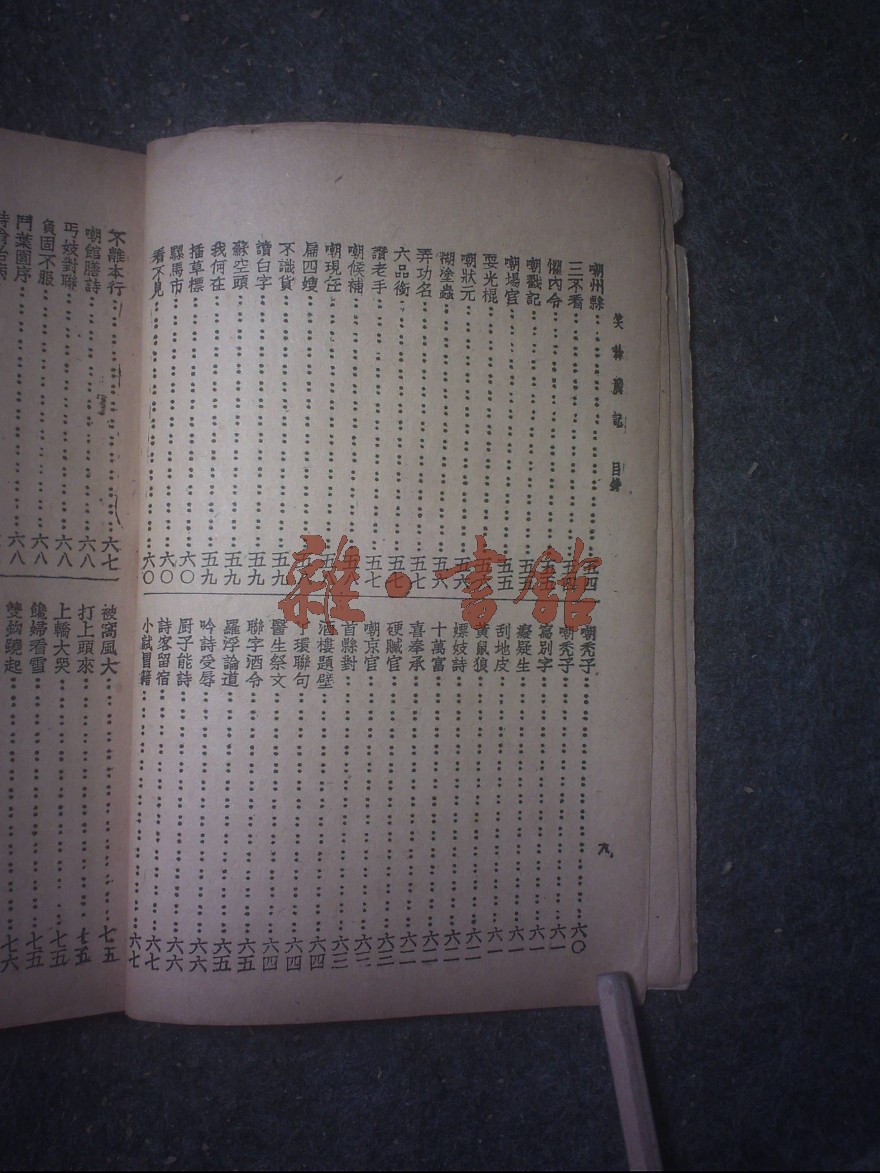 笑林廣記 目錄
嘲州縣 五四
三不看 五四
懼內令 五五
嘲戳記 五五
嘲場官 五五
耍光棍 五六
嘲狀元 五六
糊塗蟲 五六
弄功名 五七
六品銜 五七
讚老手 五七
嘲候補
嘲現任
扁四嫂 五八
不識貨 五九
讀白字 五九
蘇空頭 五九
我何在 五九
插草標 六〇
騾馬市 六〇
看不見 六〇
嘲禿子 六〇
嘲禿子 六一
寫別字 六一
癡疑生 六一
刮地皮 六一
黃鼠狼
嫖妓詩
十萬富
喜奉承
硬贓官
嘲京官
首縣對 六三
酒樓題壁 六四
丫環聯句 六四
醫生祭文 六四
聯字酒令 六五
羅浮論道 六五
吟詩受辱 六六
厨子能詩 六六
詩客留宿 六七
小試冒籍 六七
九
不離本行 六七
嘲館膳詩 六八
丐妓對聯 六八
負固不服 六八
鬥葉園序 六八
被窩風大 七五
打上頭來 七五
上轎大哭 七五
饞婦看雪 七五
雙鈎蹺起 七六
雜·書館